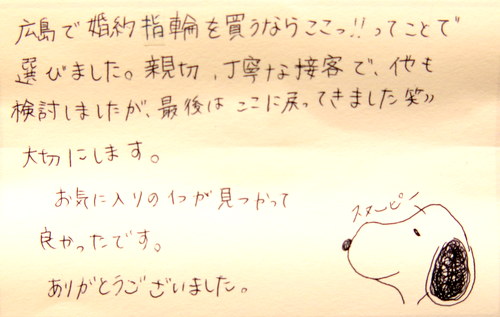 広島で婚約指輪を買うならここっ!!ってことで
選びました。親切、丁寧な接客で、他も
検討しましたが、最後はここに戻ってきました笑»
大切にします。
お気に入りの1つが見つかって
良かったです。
ありがとうございました。
スヌーピー